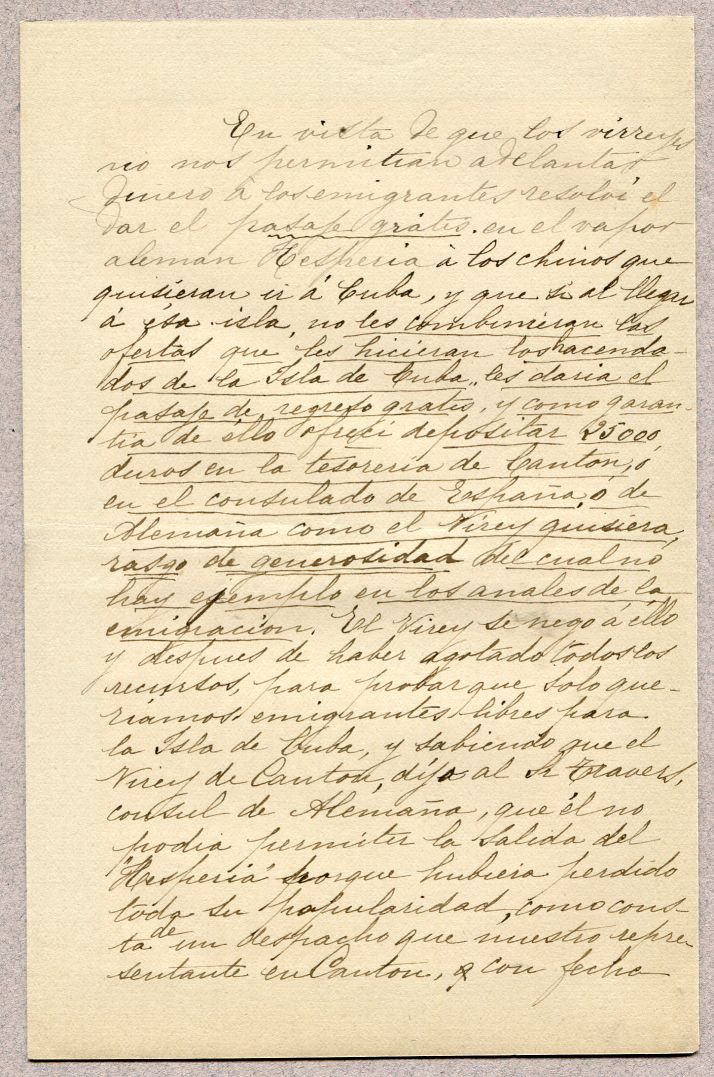 En vista de que los virreyes
no nos permitian adelantar
dinero á los emigrantes resolví el
dar el pasaje grátis. en el vapor
aleman Hesperia à los chinos que
quisieran ir á Cuba, y que si al llegar
á ésa isla, no les combinieran las
ofertas que les hicieran los hacenda-
dos de la Isla de Cuba, les daria el
pasaje de regreso gratis, y como garan-
tia de éllo ofreci depositar 25000
duros en la tesoreria de Canton, ó
en el consulado de España, ó de
Alemaña como el Virey quisiera,
rasgo de generosidad del cual no
hay ejemplo en los anales de la
emigracion. El Virey se negó á ello
y despues de haber agotado todos los
recursos, para probar que solo que-
riamos emigrantes libres para
la Isla de Cuba, y sabiendo que el
Virey de Canton, dijo al Sr Travers,
consul de Alemaña, que él no
podia permiter la salida del
"Hesperia" porque hubiera perdido
toda su popularidad, como cons-
ta de un despacho que nuestro repre
sentante en Canton, con fecha